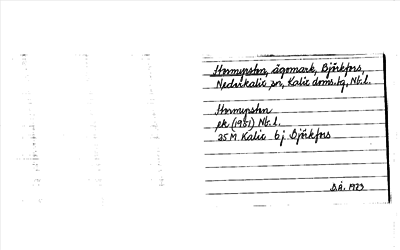 Stormyrstøn, ägomark, Björkfors,
Nederkalix sn, Kalix doms.tg, Nb.l.
Stormyrstøn
ek. (1951) Nb.l.
25 M Kalix 6 j Björkfors
D.Å. 1973